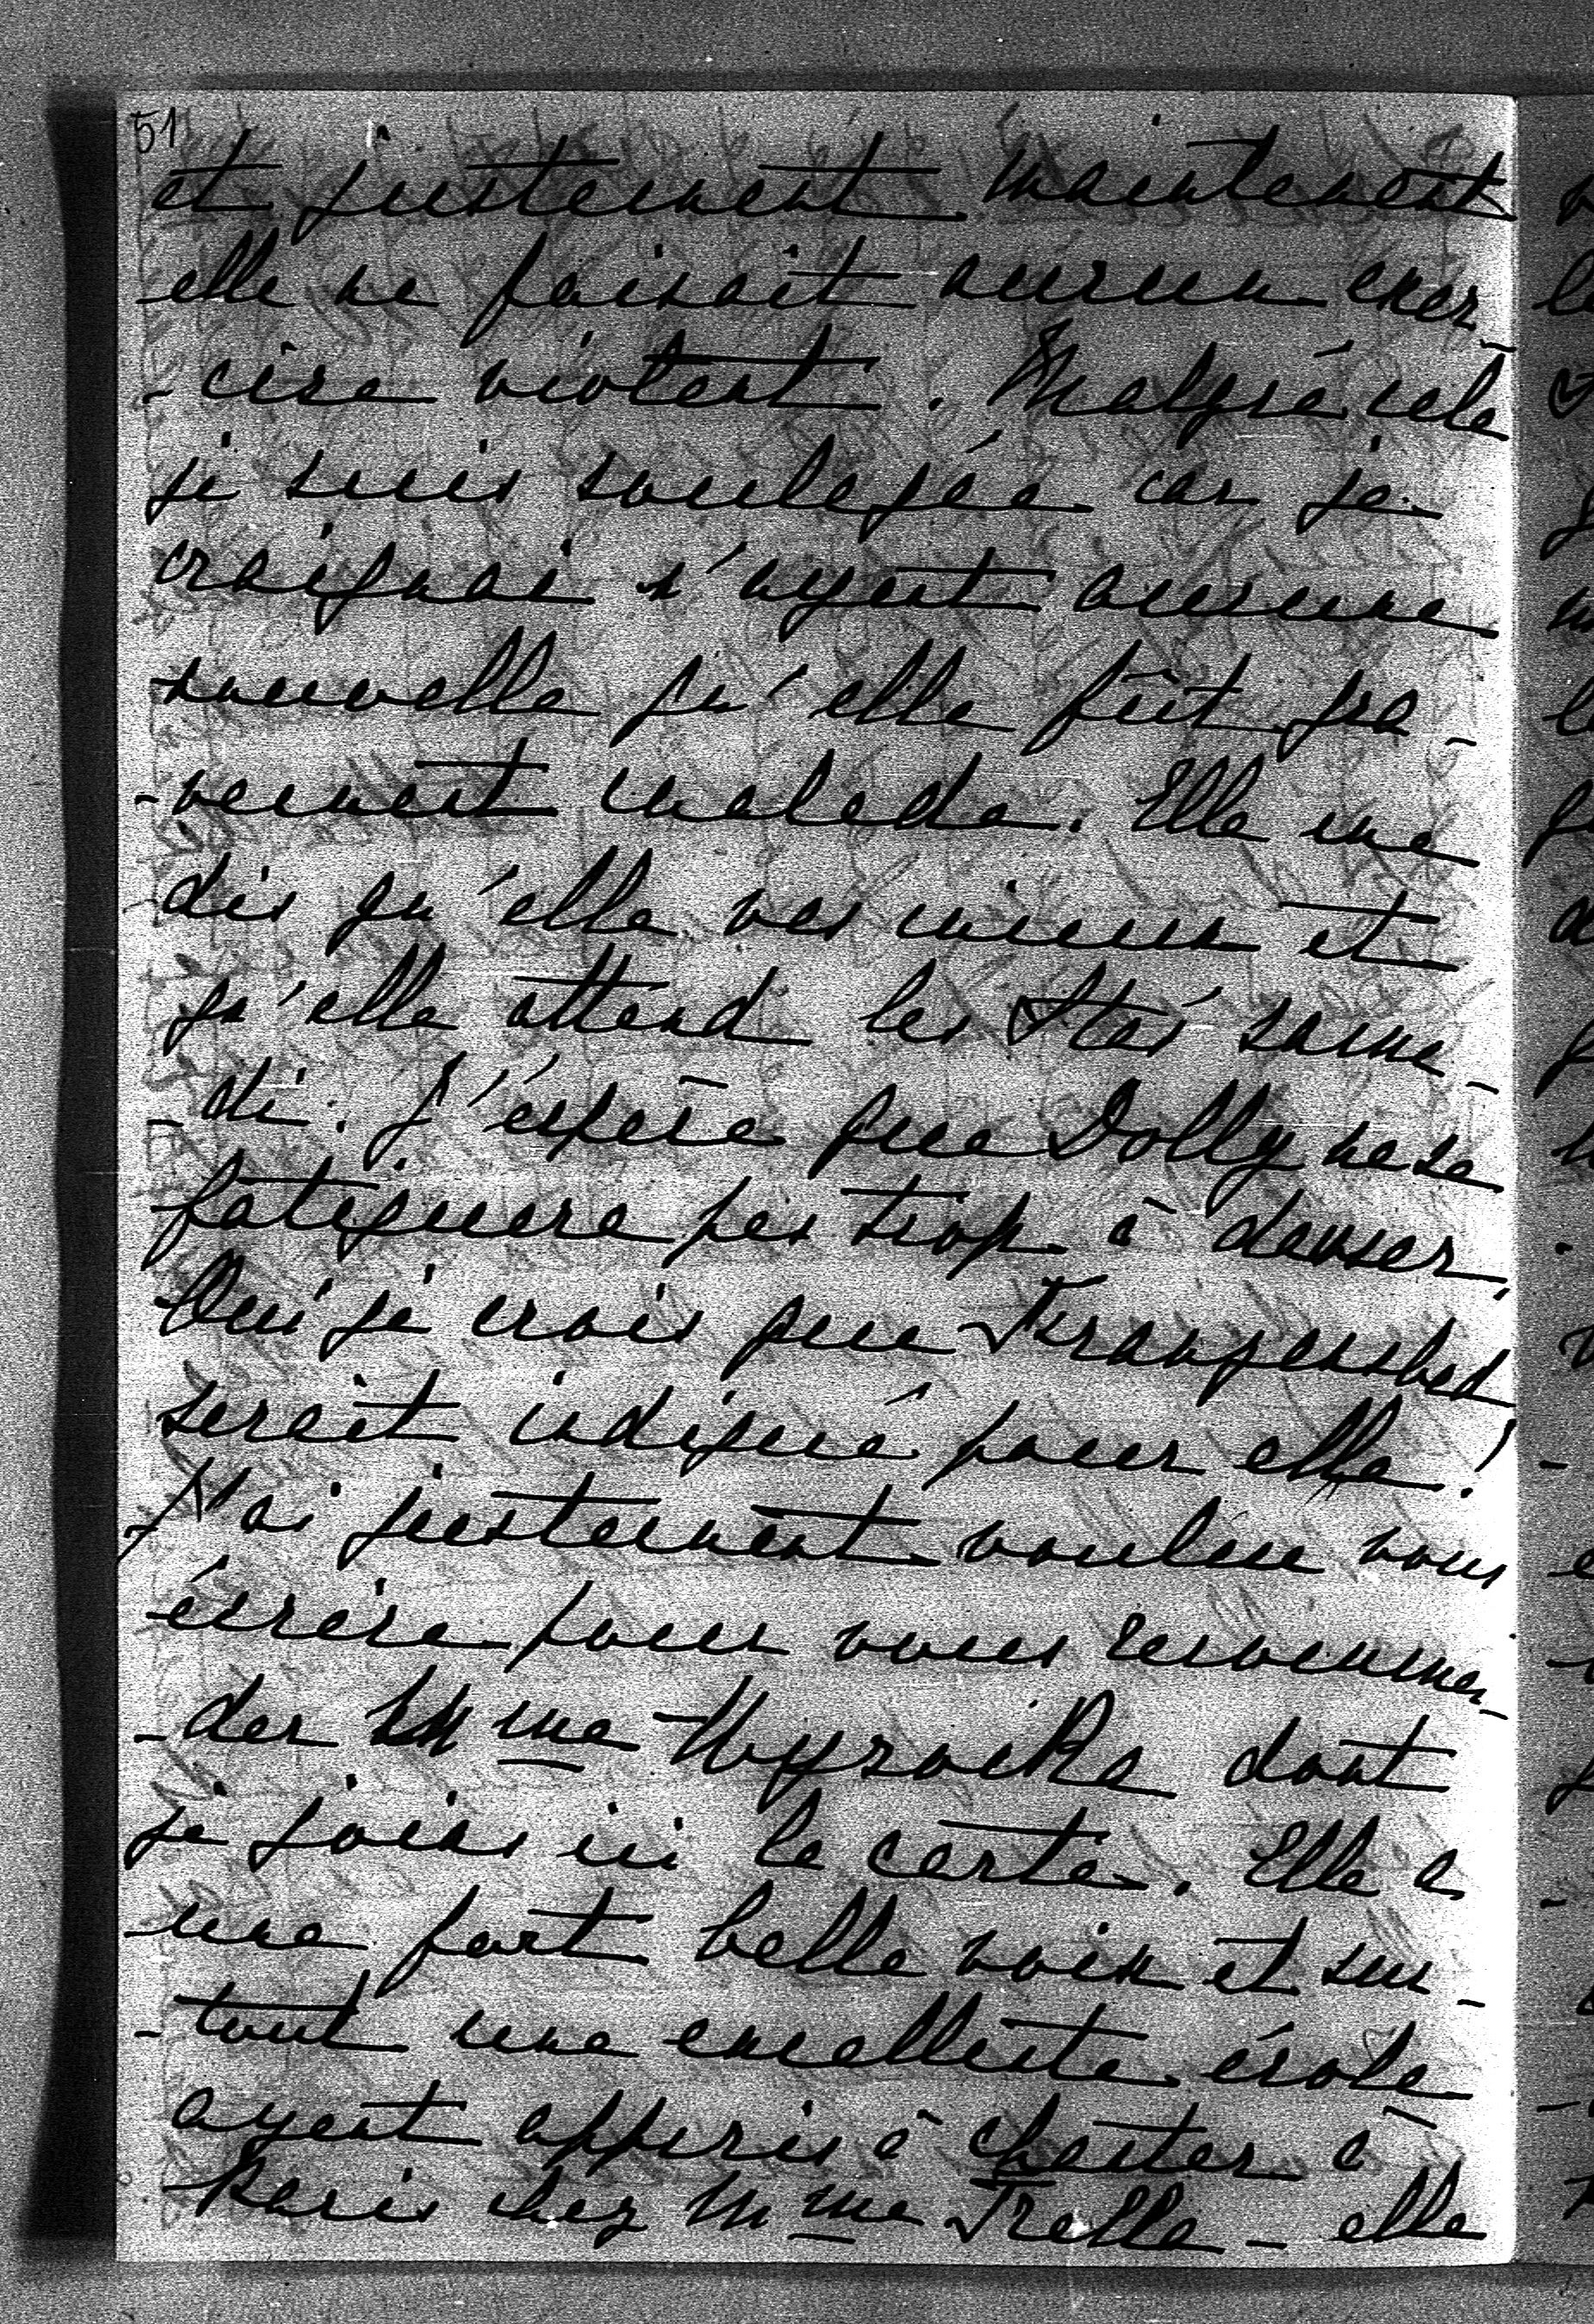 51
et justement maintenant
elle ne faisait aucun exer-
-cise violent. Malgré cela
je suis soulagée car je
craignai n'ayant aucune
nouvelle qu'elle fût gra-
-vement malade. Elle me
dis qu'elle vas mieux et
qu'elle attend les Stas' same-
-di. J'espère que Dolly ne se
fatiguera pas trop à danser,
Oui je crois que Franzensbad
serait indiqué pour elle!
J'ai justement voulue vous
écrire pour vous recommen-
-der Mme Wysocka dont
je joins ici la carte. Elle a
une fort belle voix et sur-
-tout une excellente école
ayant appris à chanter à
Paris chez Mme Trella - elle